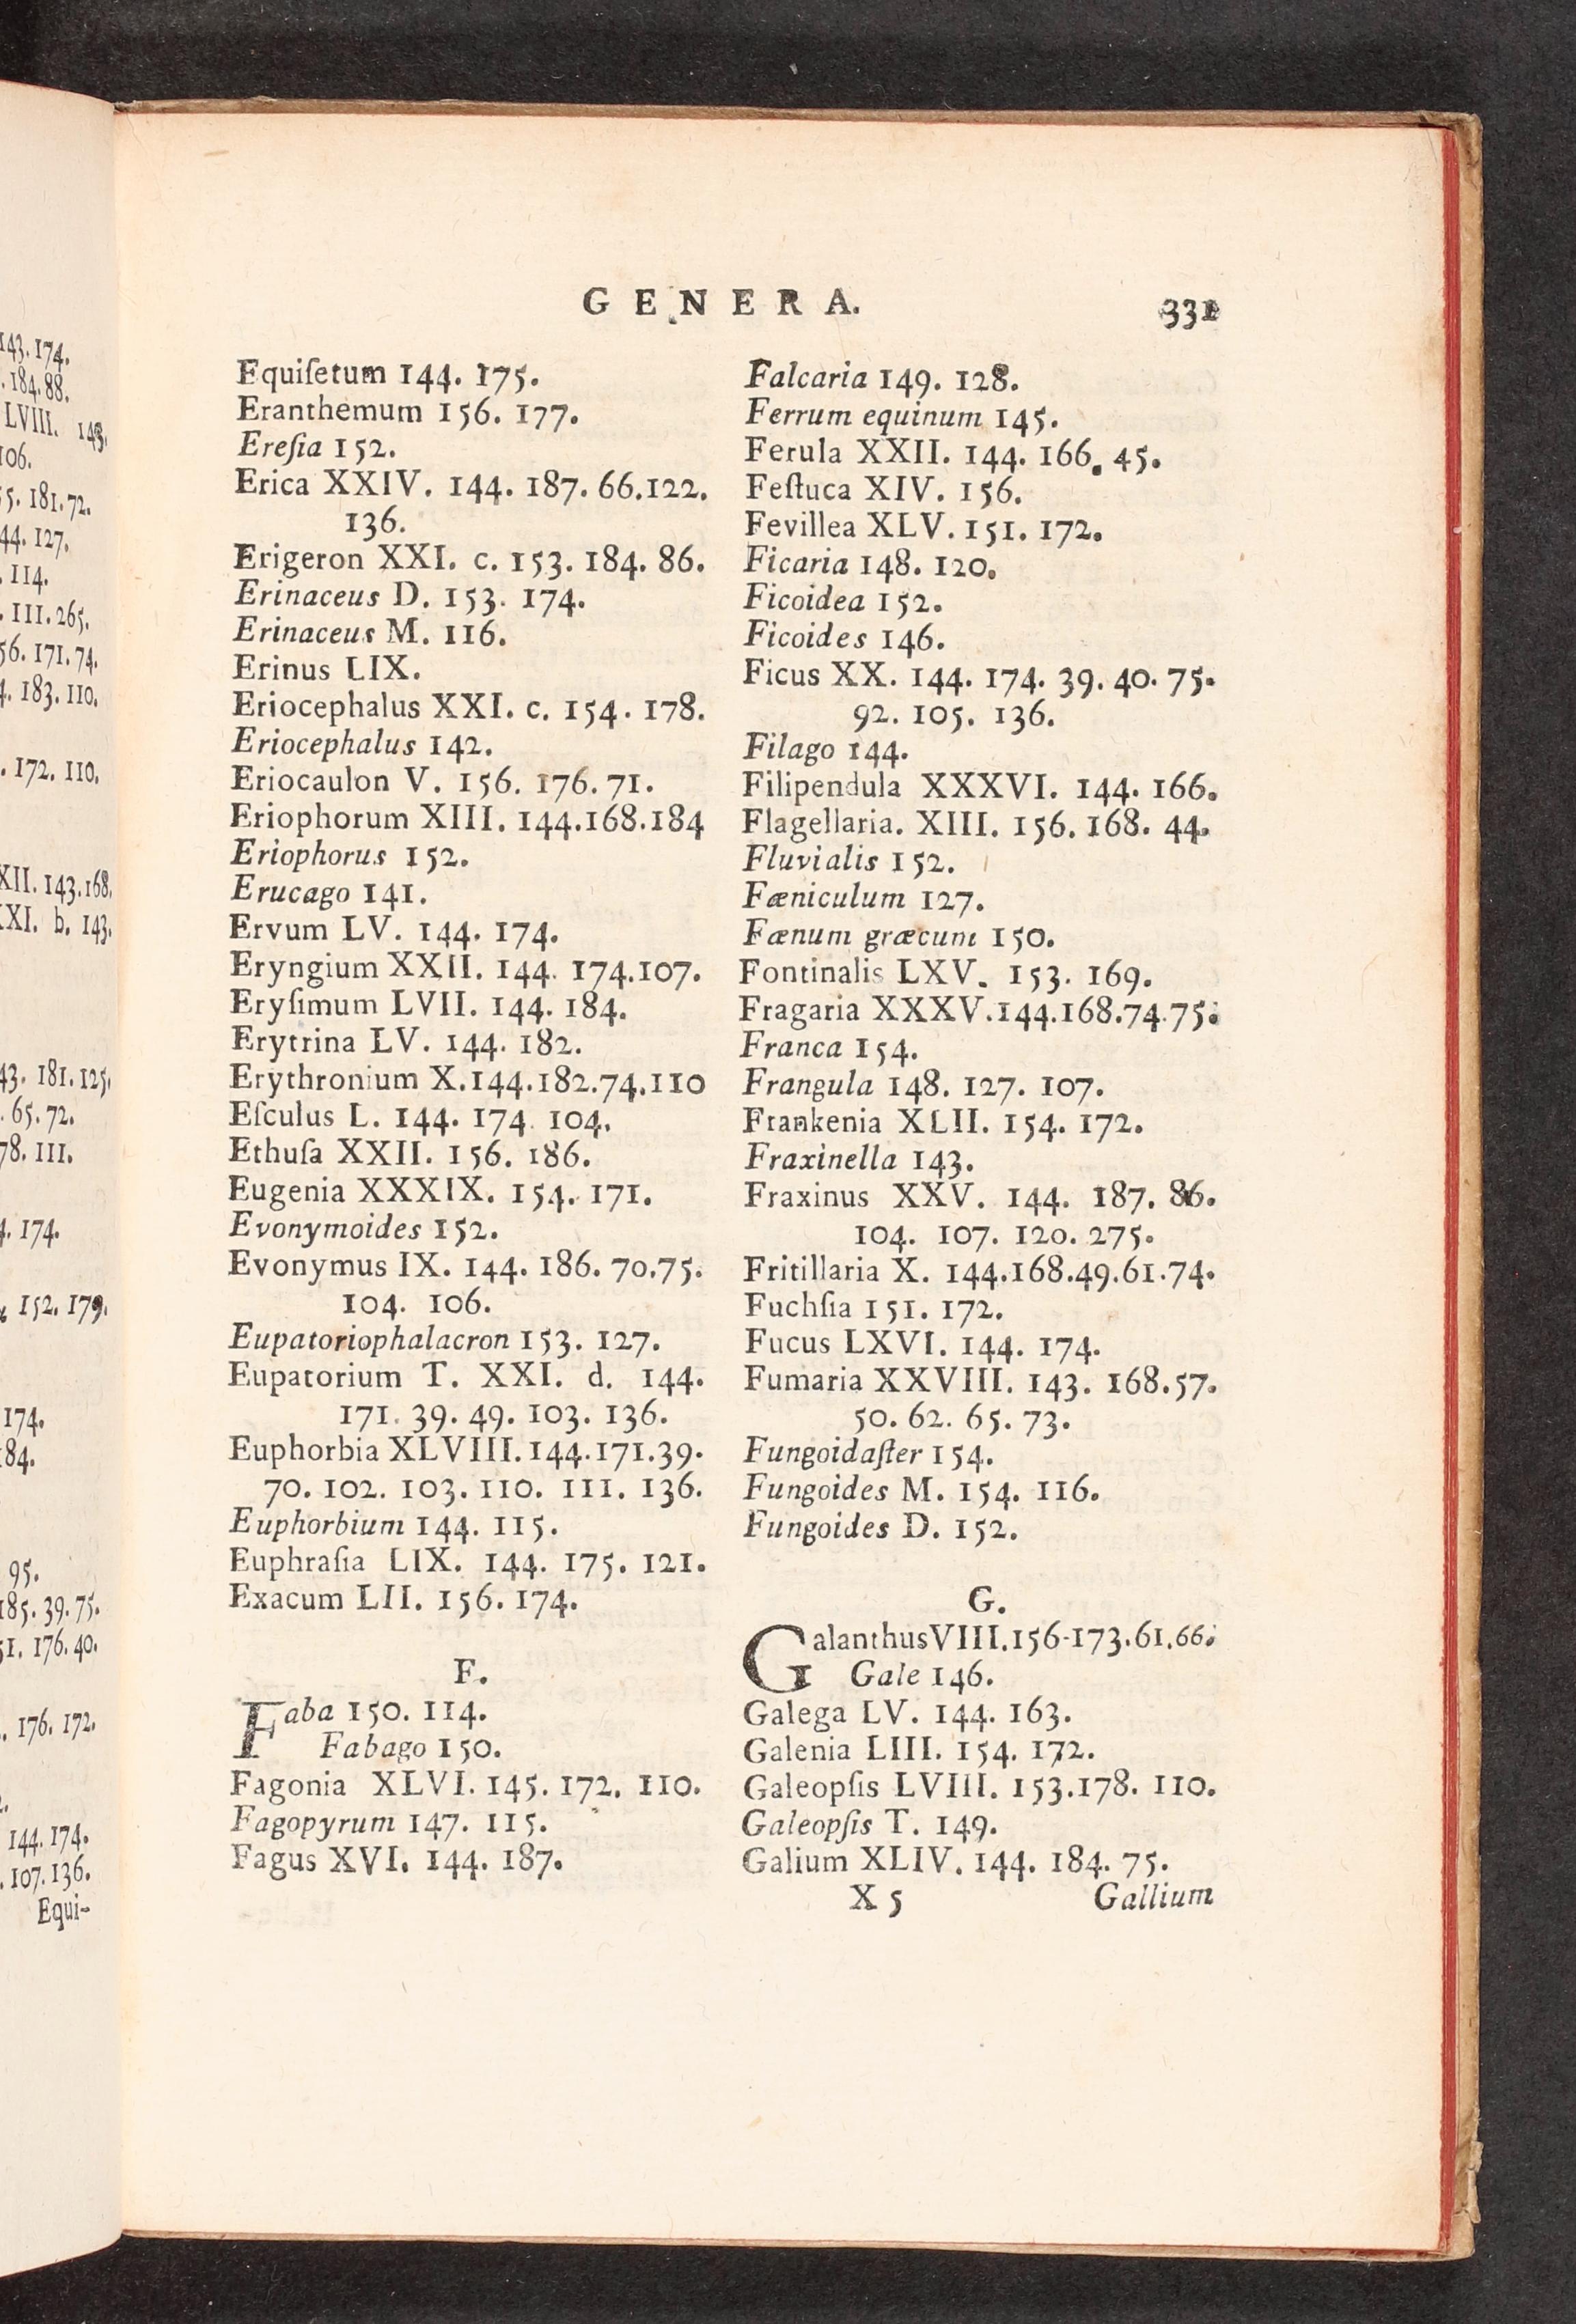 143. 174.
. 184. 88.
LVIII. 143.
106.
55. 181. 72.
44. 127.
. 114.
. 111. 265.
56. 171. 74.
4. 183. 110.
. 172. 110.
XII. 143. 168.
XXI. b. 143.
43. 181. 125.
. 65. 72.
78. 111.
4. 174.
152. 179.
174.
184.
95.
185. 39. 75.
51. 176. 40.
. 176. 172.
144. 174.
. 107. 136.
Equi-
GENERA. 331
Equiſetum 144. 175.
Eranthemum 156. 177.
Ereſia 152.
Erica XXIV. 144. 187. 66. 122.
136.
Erigeron XXI. c. 153. 184. 86.
Erinaceus D. 153. 174.
Erinaceus M. 116.
Erinus LIX.
Eriocephalus XXI. c. 154. 178.
Eriocephalus 142.
Eriocaulon V. 156. 176. 71.
Eriophorum XIII. 144. 168. 184
Eriophorus 152.
Erucago 141.
Ervum LV. 144. 174.
Eryngium XXII. 144. 174. 107.
Eryſimum LVII. 144. 184.
Erytrina LV. 144. 182.
Erythronium X. 144. 182. 74. 110
Eſculus L. 144. 174. 104.
Ethuſa XXII. 156. 186.
Eugenia XXXIX. 154. 171.
Evonymoides 152.
Evonymus IX. 144. 186. 70. 75.
104. 106.
Eupatoriophalacron 153. 127.
Eupatorium T. XXI. d. 144.
171. 39. 49. 103. 136.
Euphorbia XLVIII. 144. 171. 39.
70. 102. 103. 110. 111. 136.
Euphorbium 144. 115.
Euphraſia LIX. 144. 175. 121.
Exacum LII. 156. 174.
F.
Faba 150. 114.
Fabago 150.
Fagonia XLVI. 145. 172. 110.
Fagopyrum 147. 115.
Fagus XVI. 144. 187.
Falcaria 149. 128.
Ferrum equinum 145.
Ferula XXII. 144. 166. 45.
Feſtuca XIV. 156.
Fevillea XLV. 151. 172.
Ficaria 148. 120.
Ficoidea 152.
Ficoides 146.
Ficus XX. 144. 174. 39. 40. 75.
92. 105. 136.
Filago 144.
Filipendula XXXVI. 144. 166.
Flagellaria. XIII. 156. 168. 44.
Fluvialis 152.
Fæniculum 127.
Fænum græcum 150.
Fontinalis LXV. 153. 169.
Fragaria XXXV. 144. 168. 74. 75.
Franca 154.
Frangula 148. 127. 107.
Frankenia XLII. 154. 172.
Fraxinella 143.
Fraxinus XXV. 144. 187. 86.
104. 107. 120. 275.
Fritillaria X. 144. 168. 49. 61. 74.
Fuchſia 151. 172.
Fucus LXVI. 144. 174.
Fumaria XXVIII. 143. 168. 57.
50. 62. 65. 73.
Fungoidaſter 154.
Fungoides M. 154. 116.
Fungoides D. 152.
G.
Galanthus VIII. 156-173. 61. 66.
Gale 146.
Galega LV. 144. 163.
Galenia LIII. 154. 172.
Galeopſis LVIII. 153. 178. 110.
Galeopſis T. 149.
Galium XLIV. 144. 184. 75.
X 5 Gallium